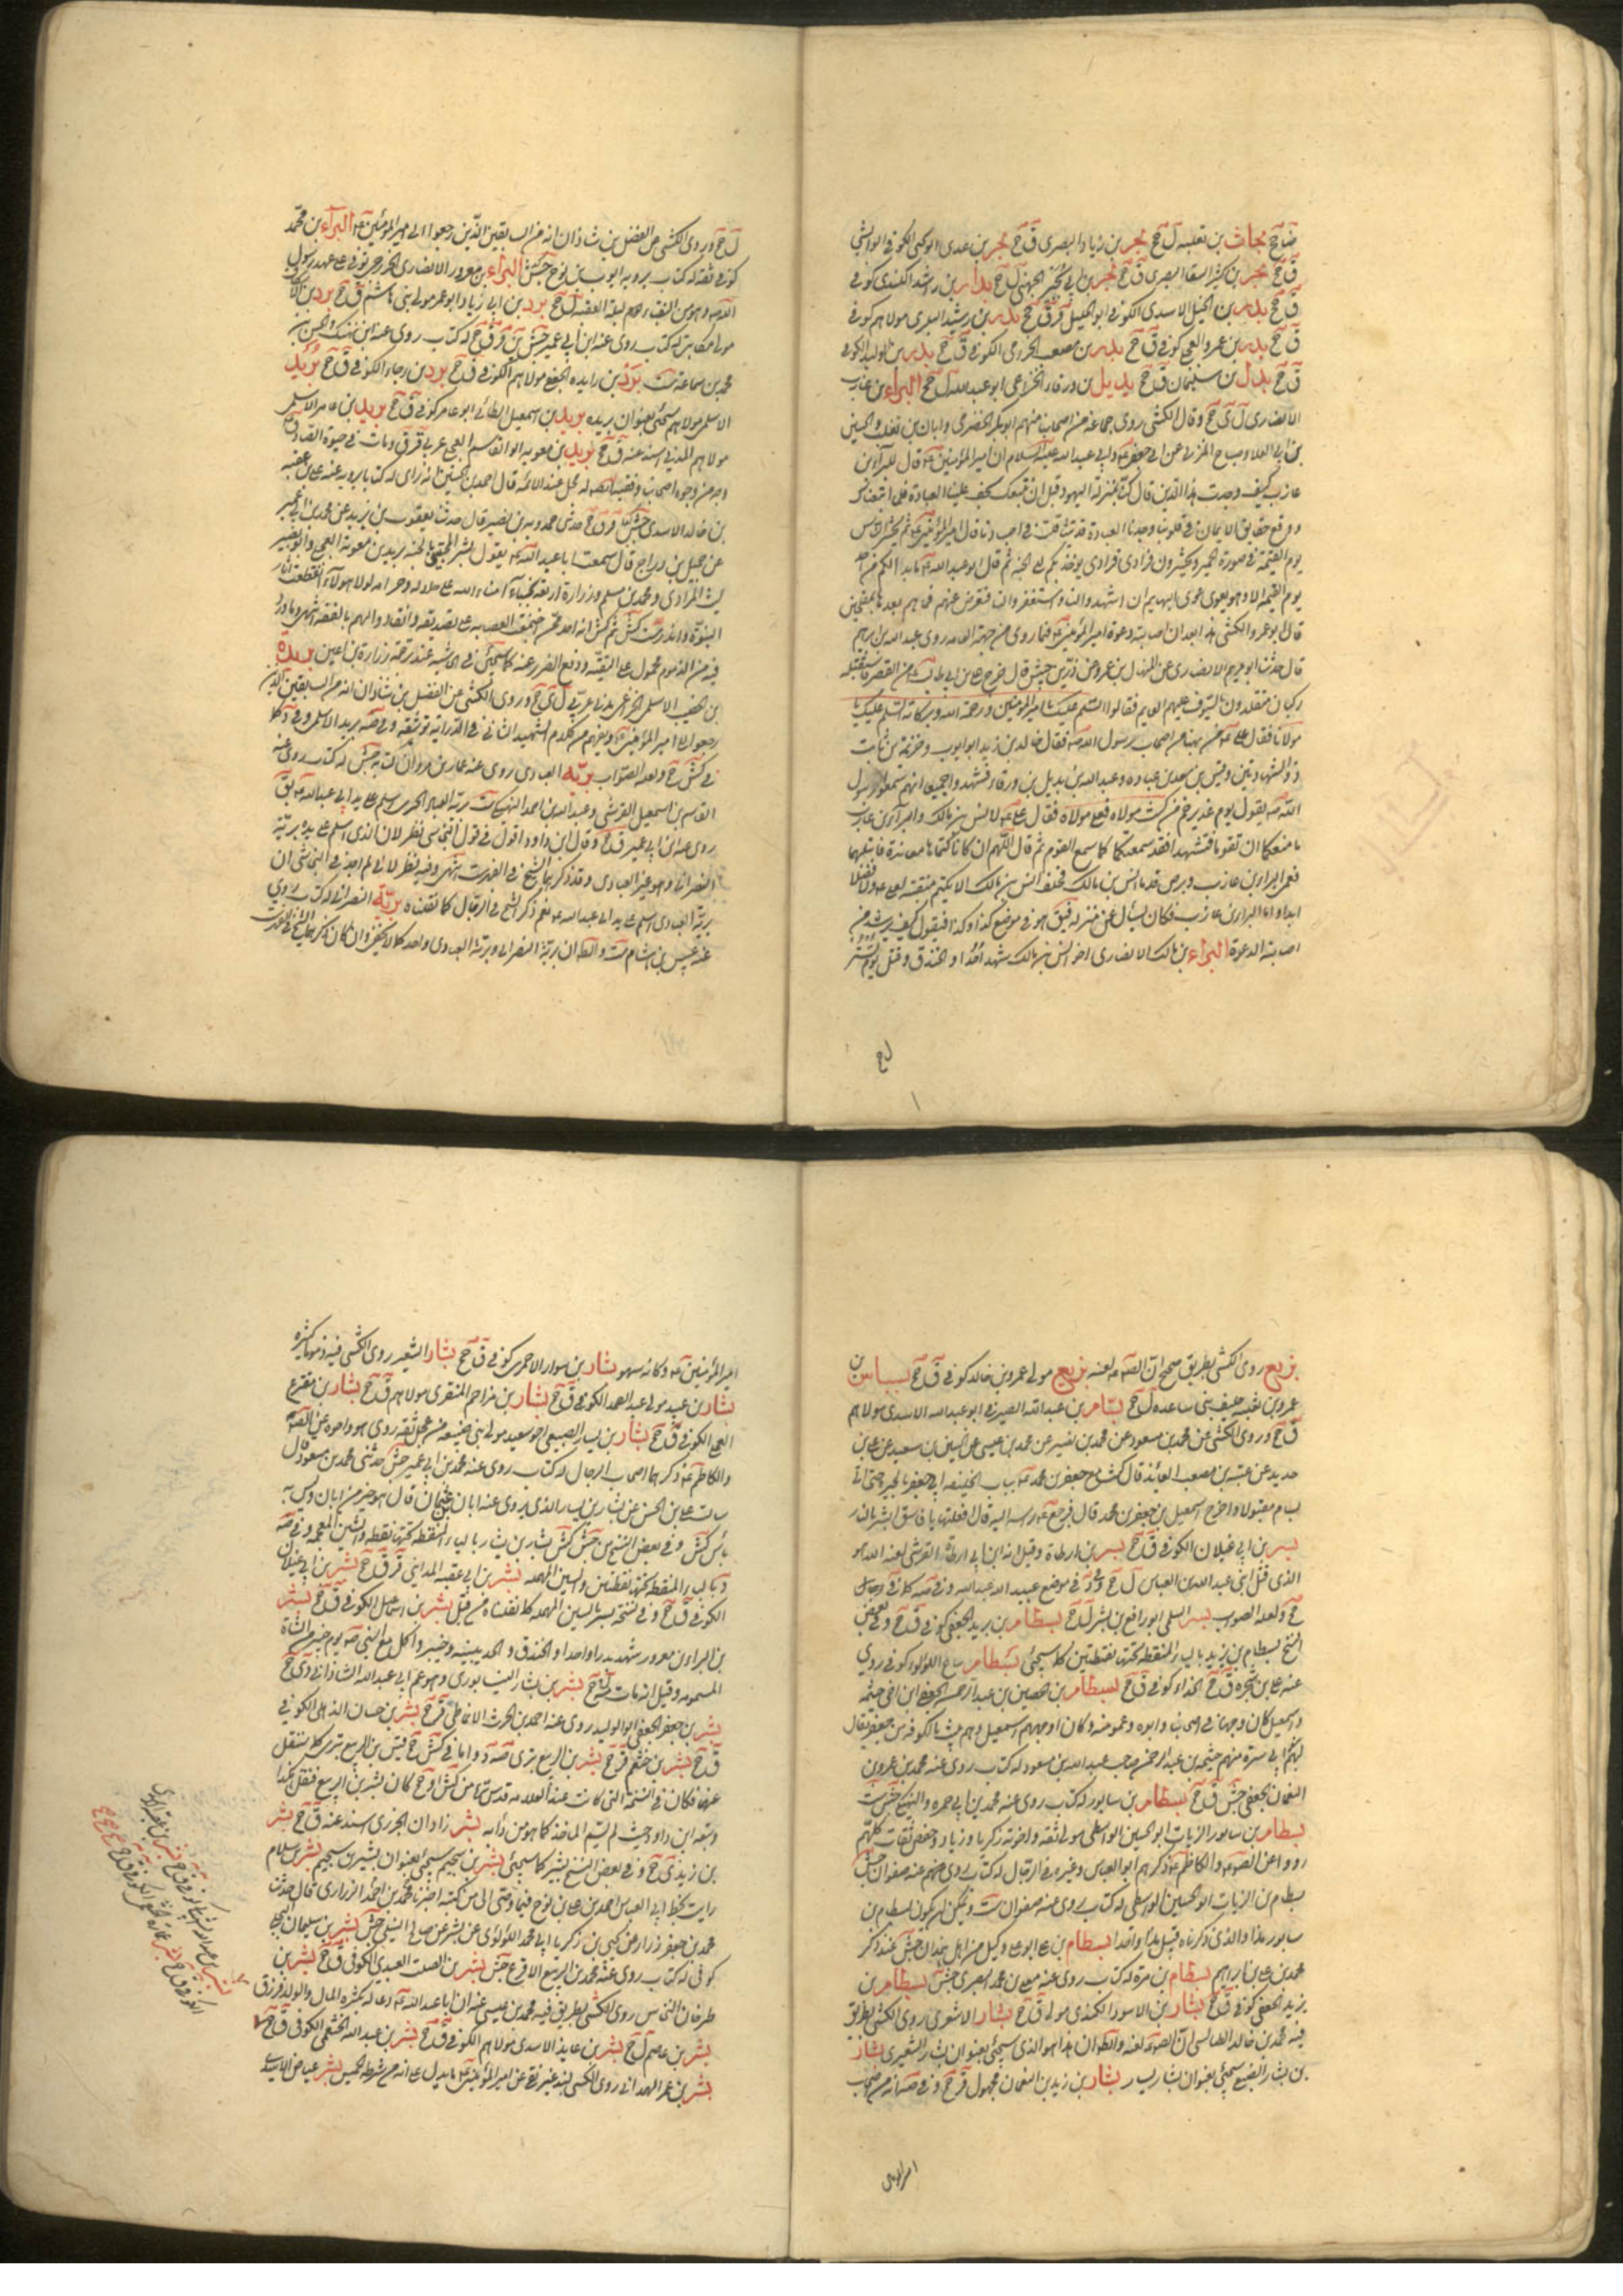 ضا جخ بجاث بن ثعلبه ل جخ بحر بن زياد البصرى ق جخ بحر بن عدى ابويحيى الكوفى الوابشى
ق جخ بحر بن كثير السقا البصرى ق جخ بحر بن ابى بحتر الجهنى ل جخ بدار بن راشد الكندى كوفى
ق جخ بدر بن الخليل الاسدى الكوفى ابو الخليل قر ق جخ بدر بن رشيد البكرى مولاهم كوفى
ق جخ بدر بن عمرو العجلى كوفى ق جخ بدر بن مصعب الخزومى الكوفى ق جخ بدر بن الوليد الكوفى
ق جخ بلال بن سليمان ق جخ بديل بن ورقاء الخزاعى ابو عبدالله ل جخ البراء بن عازب
الانصارى ل ى جخ وقال الكشى روى جماعة من اصحابنا منهم ابوبكر الحضرمى وابان بن تغلب والحسين
بن ابى العلا وصباح المزنى عن ابى جعفر وابى عبدالله عليهما السلام ان امير المؤمنين قال للبراء بن
عازب كيف وجدت هذا الدين قال كنا بمنزلة اليهود قبل ان نتبعك تخف علينا العبادة فلما اتبعناك
ووقع حقايق الايمان فى قلوبنا وجدنا العبادة قد تثاقلت فى اجسادنا قال امير المؤمنين فمن ثم يحشر الناس
يوم القيمة فى صورة الحمير وتحشرون فرادى فرادى يؤخذ بكم الى الجنة ثم قال ابو عبدالله ما بدا لكم ما من احد
يوم القيمة الا وهو يعوى عوى البهايم ان اشهدوا لنا واستغفروا لنا فنعرض عنهم فما هم بعدها بمفلحين
قال ابو عمرو الكشى هذا بعد ان اصابته دعوة امير المؤمنين فيما روى من جهة العامة روى عبدالله بن ابراهيم
قال حدثنا ابو مريم الانصارى عن المنهال بن عمرو عن زر بن حبيش قال خرج على بن ابى طالب من القصر فاستقبله
ركبان متقلدون بالسيوف عليهم العمايم فقالوا السلم عليك يا امير المؤمنين ورحمة الله وبركاته السلم عليك يا
مولانا فقال على من هيهنا من اصحاب رسول الله فقام خالد بن زيد ابو ايوب وخزيمة بن ثابت
ذو الشهادتين وقيس بن سعد بن عباده وعبدالله بن بديل بن ورقاء فشهدوا جميعا انهم سمعوا رسول
الله يقول يوم غدير خم من كنت مولاه فعلى مولاه فقال على لانس بن مالك والبراء بن عازب
ما منعكما ان تقوما فتشهدا فقد سمعتما كما سمع القوم ثم قال اللهم ان كانا كتماها معاندة فابتلهما
فعمى البراء بن عازب وبرص قدما انس بن مالك فحلف انس بن مالك الا يكتم منقبة لعلى ولا فضلا
ابدا واما البراء بن عازب فكان يسأل عن منزله فيقال هو فى موضع كذا وكذا فيقول كيف يرشد من
اصابته الدعوة البراء بن مالك الانصارى اخو انس بن مالك شهد احدا والخندق وقتل يوم تستر
ل جخ
ل جخ وروى الكشى عن الفضل بن شاذان انه من السابقين الذين رجعوا الى امير المؤمنين البراء بن محمد
كوفى ثقة له كتاب يرويه ايوب بن نوح جش البراء بن معرور الانصارى الخزرجى توفى على عهد رسول
الله وهو من النقباء ليلة العقبة ل جخ برد بن ابى زياد ابو عمر مولى بنى هاشم ق جخ برد الاسكاف
مولى مكاتب له كتاب روى عنه ابن ابى عمير جش ين قر ق جخ له كتاب روى عنه ابن نهيك والحسن بن
محمد بن سماعة ست برد بن زايده الجعفى مولاهم الكوفى ق جخ برد بن رجاء الكوفى ق جخ بريد
الاسلمى مولاهم سيجئ بعنوان بريده بريد بن اسمعيل الطائى ابو عامر كوفى ق جخ بريد بن عامر الاسلمى
مولاهم المدنى اسند عنه ق جخ بريد بن معويه ابو القاسم العجلى عربى قر ق ومات فى حيوة الصادق
وجه من وجوه اصحابنا وفقيه ايضا له محل عند الائمة قال احمد بن الحسين انه راى له كتابا يرويه عنه على بن عقبه
بن خالد الاسدى جش قر ق جخ حدثنى حمدويه بن نصير قال حدثنا يعقوب بن يزيد عن محمد بن ابى عمير
عن جميل بن دراج قال سمعت ابا عبد الله يقول بشر المخبتين بالجنة بريد بن معوية العجلى وابو بصير
ليث المرادى ومحمد بن مسلم وزرارة اربعة نجباء امناء الله على حلاله وحرامه لولا هؤلاء انقطعت اثار
النبوة واندرست كش ثم كش انه احد ممن اجتمعت العصابة على تصديقه وانقادوا لهم بالفقه اشهر وما ورد
فيه من الذموم محمول على التقية ودفع الضرر عنه كما سيجئ فى امثاله عند ترجمة زرارة بن اعين بريده
بن الخصيب الاسلمى الخزاعى مدنى عربى ل ى جخ وروى الكشى عن الفضل بن شاذان انه من السابقين الذين
رجعوا الى امير المؤمنين ويفهم من كلام الشهيد الثانى فى الدراية توثيقه وفى صه بريد الاسلمى وفى د كلا
فى كش جخ ولعله الصواب بريه العبادى روى عنه عمار بن مروان كتابه جش له كتاب روى عنه
القاسم بن اسمعيل القرشى وعبدالله بن احمد النهيكى ست بريه العبادى الحيرى اسلم على يد ابى عبدالله يق
روى عنه ابن ابى عمير ق جخ وقال ابن داود اقول فى قول النجاشى نظر لان الذى اسلم على يده بريه
النصرانى وهو غير العبادى وقد ذكرهما الشيخ فى الفهرست انتهى وفيه نظر لانى لم اجد فى النجاشى ان
بريه العبادى اسلم على يد ابى عبدالله نعم ذكر الشيخ فى الرجال كما نقلناه بريه النصرانى له كتاب روى
عنه عبيس بن هشام ست والظاهر ان بريه النصرانى وبريه العبادى واحد كما لا يخفى وان كان
بزيع روى الكشى بطريق صحيح ان الصادق لعنه بزيع مولى عمرو بن خالد كوفى ق جخ بسباس بن
عمرو بن ثعلبه حليف بنى ساعده ل جخ بسام بن عبدالله الصيرفى ابو عبدالله الاسدى مولاهم
ق جخ وروى الكشى عن محمد بن مسعود عن محمد بن نصير عن محمد بن عيسى عن الحسين بن سعيد عن على بن
حديد عن عنبسه بن مصعب العابد قال كنت مع جعفر بن محمد بباب الخليفة ابى جعفر بالحيرة حتى اتى
بسام مقتولا واخرج اسمعيل بن جعفر بن محمد قال فرجع راسه اليه قال افعلتها يا فاسق ابشر بالنار
بسر بن ابى غيلان الكوفى ق جخ بسر بن ارطاة وقيل انه ابن ابى ارطاة القرشى لعنه الله هو
الذى قتل ابنى عبدالله بن العباس ل جخ وفى د فى موضع عبيد الله عبدالله وفى صه كما فى رجال
جخ ولعله الصواب بسر السلمى ابو رافع بن بشر ل جخ بسطام بن يزيد الجعفى كوفى ق جخ وفى بعض
النسخ بسطام بن يزيد بالياء المنقطة تحتها نقطتين كما سيجئ بسطام بياع اللؤلؤ كوفى روى
عنه على بن شجره ق جخ الحذاء كوفى ق جخ بسطام بن الحصين بن عبد الرحمن الجعفى ابن اخى خيثمه
واسمعيل كان وجها فى اصحابنا وابوه وعمومته وكان اوجههم اسمعيل وهم بيت بالكوفة من جعفى يقال
لهم بنو ابى سبرة منهم خيثمه بن عبد الرحمن صاحب عبدالله بن مسعود له كتاب روى عنه محمد بن عمرو بن
النعمان الجعفى جش ق جخ بسطام بن سابور له كتاب روى عنه محمد بن ابى حمزه والنهيكى جش ست
بسطام بن سابور الزيات ابو الحسين الواسطى مولى ثقه واخوته زكريا وزياد وحفص ثقات كلهم
رووا عن الصادق والكاظم ذكرهم ابو العباس وغيره فى الرجال له كتاب روى عنهم عنه صفوان جش
بسطام بن الزيات ابو الحسين الواسطى له كتاب روى عنه صفوان ست ويمكن ان يكون بسطام بن
سابور هذا والذى ذكرناه قبيل هذا واحدا بسطام بن على ابو على وكيل من اهل همدان جش عند ذكر
محمد بن على بن ابراهيم بسطام بن مرة له كتاب روى عنه معلى بن محمد البصرى جش بسطام بن
يزيد الجعفى كوفى ق جخ بشار بن الاسود الكندى مولى ق جخ بشار الاشعرى روى الكشى بطريق
فيه محمد بن خالد الطيالسى ان الصادق لعنه والظاهر ان هذا هو الذى سيجئ بعنوان بشار الشعيرى بشار
بن بشار الضبعى سيجئ بعنوان بشار بن يسار بشار بن زيد بن النعمان مجهول قر جخ وفى صه انه من اصحاب
امير المؤمنين
امير المؤمنين وكانه سهو بشار بن سوار الاحمرى كوفى ق جخ بشار الشعيرى روى الكشى فيه ذموما كثيره
بشار بن عبيد مولى عبد الصمد الكوفى ق جخ بشار بن مزاحم المنقرى مولاهم ق جخ بشار بن مقرع
العجلى الكوفى ق جخ بشار بن يسار الضبيعى اخو سعيد مولى بنى ضبيعه من عجل ثقه روى هو واخوه عن الصادق
والكاظم ذكرهما اصحاب الرجال له كتاب روى عنه محمد بن ابى عمير جش حدثنى محمد بن مسعود قال
سالت على بن الحسن عن بشار بن يسار الذى يروى عنه ابان بن عثمان قال هو خير من ابان وليس به
بأس كش وفى بعض النسخ من جش كش بشار بن بشار بالباء المنقطة تحتها نقطه والشين المعجمة وفى صه
د بالياء المنقطة تحتها نقطتين والسين المهملة بشر بن ابى عقبه المداينى قر ق جخ بشر بن ابى غيلان
الكوفى ق جخ وفى نسخة بسر بالسين المهملة كما نقلناه من قبل بشر بن اسماعيل الكوفى ق جخ بشر
بن البراء بن معرور شهد بدرا واحدا والخندق والحديبية وخيبر واكل مع النبى يوم خيبر من الشاة
المسمومة وقيل انه مات منه ل جخ بشر بن بشار النيسابورى وهو عم ابى عبدالله الشاذانى دى جخ
بشر بن جعفر الجعفى ابو الوليد روى عنه احمد بن الحرث الانماطى قر جخ بشر بن حسان الذهلى الكوفى
ق جخ بشر بن خثعم قر جخ بشر بن الربيع بترى صه د واما فى كش جخ قيس بن الربيع بترى كما سننقل
عنهما فكان فى النسخة التى كانت عند العلامة قدس سره من كش او جخ كان بشر بن الربيع فنقل هكذا
وتبعه ابن داود حيث لم يسم الماخذ كما هو من دابه بشر زادان الجزرى اسند عنه ق جخ بشر
بن زيد ى جخ وفى بعض النسخ بشير كما سيجئ بشر بن سحيم سيجئ بعنوان بشير بن سحيم بشر بن سلام
رايت بخط ابى العباس احمد بن على بن نوح فيما وصى الى من كتبه اخبرنا محمد بن احمد الزرارى قال حدثنا
محمد بن جعفر زرار عن يحيى بن زكريا ابى محمد اللؤلؤى عن بشر عن صالح النيلى جش بشر بن سليمان البجلى
كوفى له كتاب روى عنه محمد بن الربيع الاقرع جش بشر بن الصلت العبدى الكوفى ق جخ بشر بن
طرخان النخاس روى الكشى بطريق فيه محمد بن عيسى عنه ان ابا عبدالله دعا له بكثرة المال والولد فرزق
بشر بن عاصم ل جخ بشر بن عايذ الاسدى مولاهم الكوفى ق جخ بشر بن عبدالله الخثعمى الكوفى ق جخ
بشر بن عمر الهمدانى روى الكشى بسند غير نقى عن امير المؤمنين ما يدل على انه من شرطة الخميس بشر بن عياض الاسدى